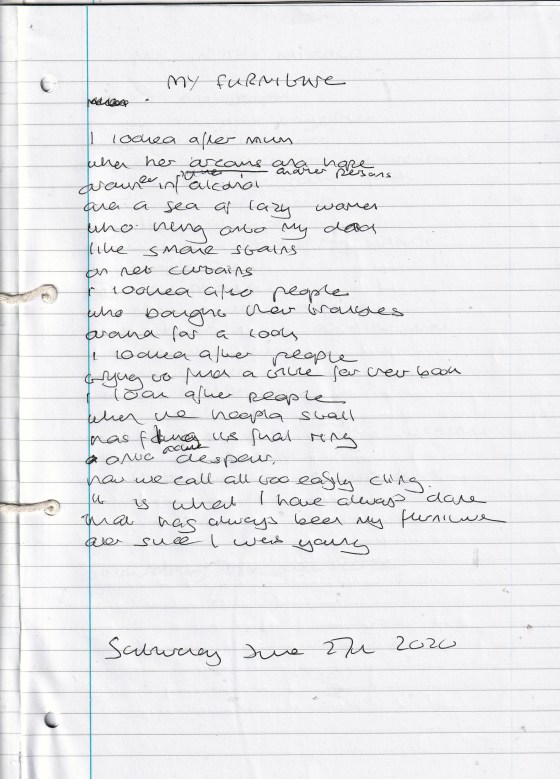 MY FURNITURE
I looked after mum
when her dreams and hope
drowned in the alcohol another persons
and a sea of lazy women
who hung onto my dad
like smoke stains
on net curtains
I looked after people
who bought their troubles
around for a look
I looked after people
trying to find a title for their book
I look after people
when the hoopla stall
has flung its final ring
onto despair.
how we call all too easily cling.
it is what I have always done
that has always been my furniture
ever since I was young
Saturday June 27th 2020